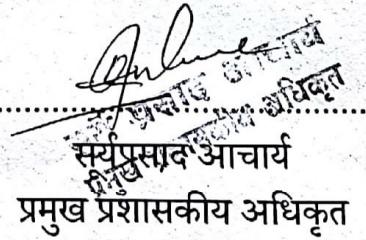 सर्यप्रसाद आचार्य
प्रमुख प्रशासकीय अधिकृत
प्रसाद आचार्य
प्रमुख प्रशासकीय अधिकृत